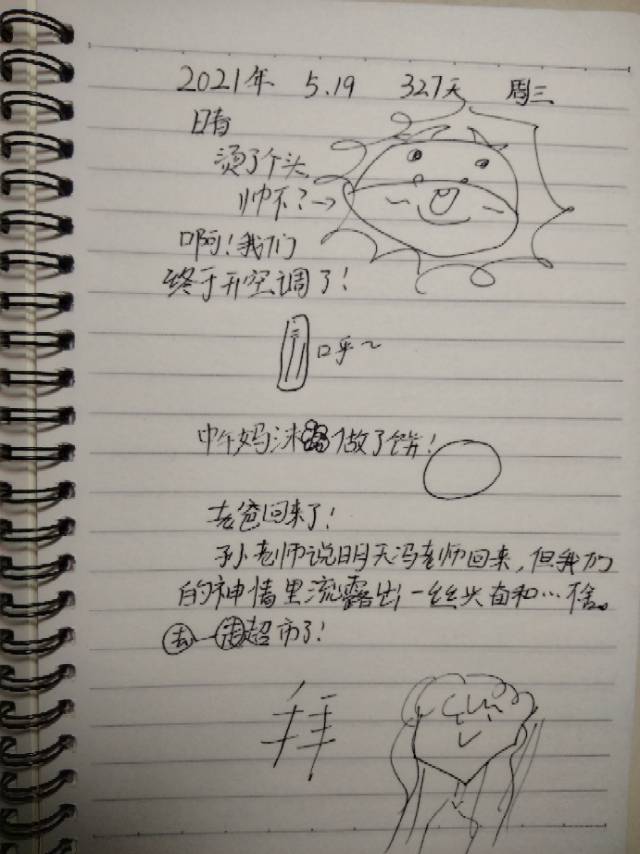 2021年 5.19 327天 周三
晴
烫了个头
帅不?→
啊!我们
终于开空调了!
呼~
中午妈沫做了饼!
老爸回来了!
孙老师说明天冯老师回来,但我们
的神情里流露出一丝失and和…不舍。
去一趟超市了!
拜